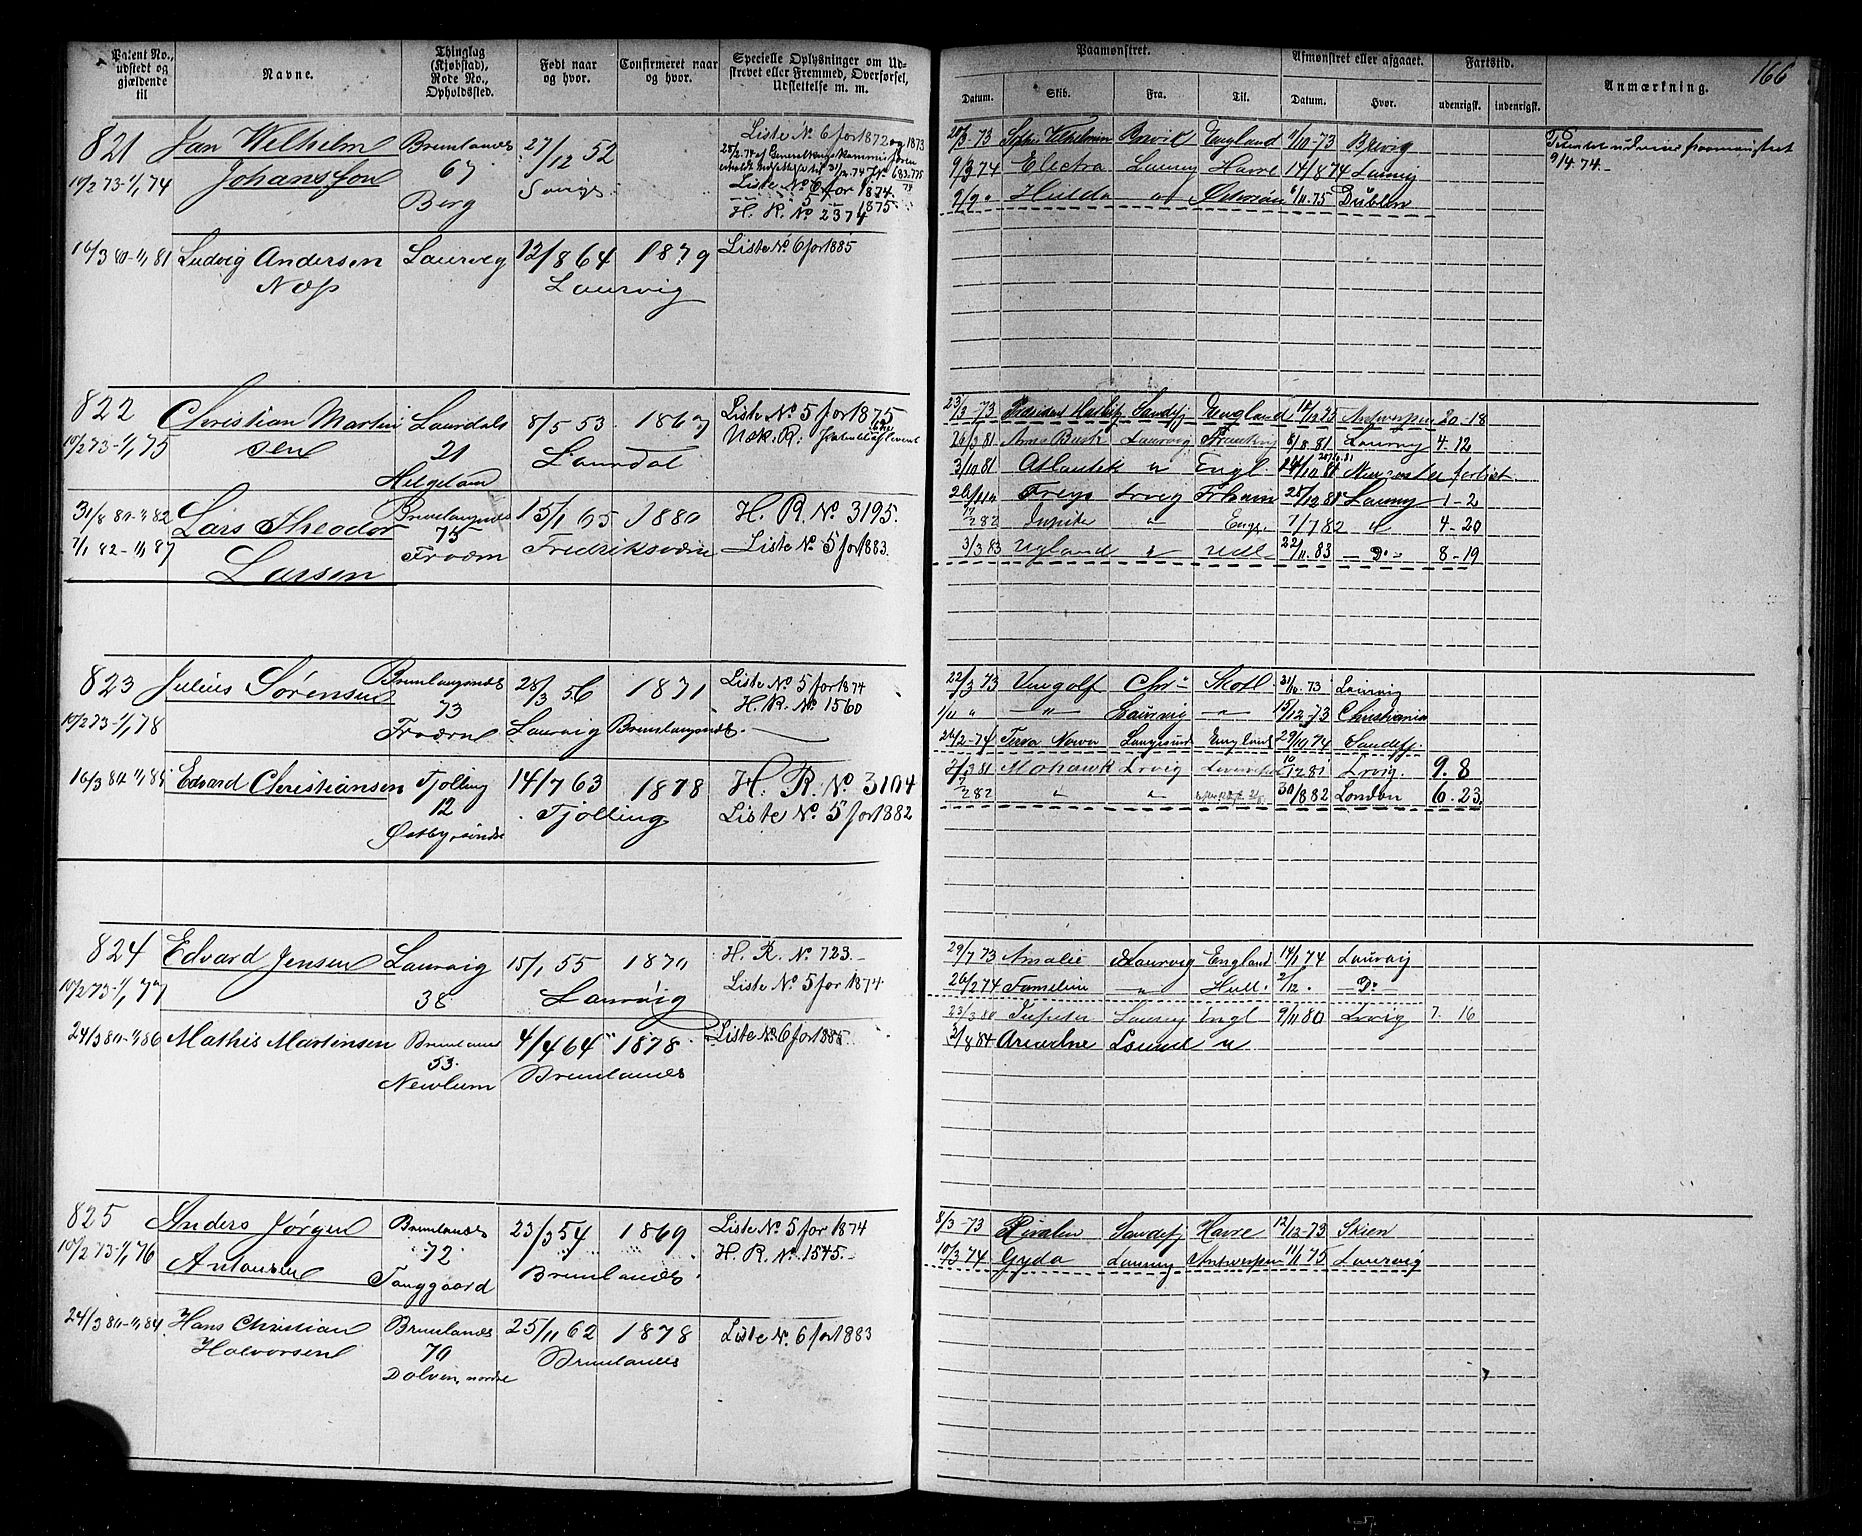 Patent No., udstedt og gjældende til
Navne.
Thinglag (Kjøbstad), Rode No., Opholdssted.
Født naar og hvor.
Confirmeret naar og hvor.
Specielle Oplysninger om Udstrevet eller Fremmed, Overførsel, Udslettelse m. m.
Paamønstret.
Datum.
Skib.
Fra.
Til.
Afmønstret eller afgaaet.
Datum.
Hvor.
Fartstid.
udenrigsk.
indenrigsk.
Anmærkning.
166
821
10/2 73-1/1 74
Jan Wilhelm
Johansson
Brunlanes
67
Berg
27/12 52
Liste No 6 for 1872 og 1873
Liste No 6 for 1874
H. R. No 2374
20/3-73 Brevik England 11/10-73 Brevig
9/3 74 Electra Laurvig Havre 14/8 74 Laurvig
2/9 " Hulda " Østersøen 6/11 75 Dublin
9/4 74.-
16/3 80-1/1 81
Ludvig Andersen
Næss
Laurvig
12/8 64
Laurvig
1879
Liste No 6 for 1885
822
10/2 73-1/1 75
Christian Martin
sen
Laurdals
21
8/5 53
Laurdal
1867
Liste No. 5 for 1875
23/3-73 Sandefj England Antwerpen 20-18
26/3 81 Laurvig 8/8 81 Laurvig 4-12
3/10 81 Atlantik " Engl forlist
Lrvig 28/12 81 Laurvig 1-2
" Engl. 7/7 82 " 4-20
3/3 83 22/11 83 - Do - 8-19
31/8 80-1/1 82
7/1 82-1/1 87
Lars Theodor
Larsen
Brunlanæs
75
15/1 65
Fredriksværn
1880
H. R. No. 3195.
Liste No. 5 for 1883.
823
10/2 73-1/1 78
Julius Sørensen
Brunlanæs
73
28/3 56
Laurvig
1871
Brunlanæs
Liste No. 5 for 1874
H. R. No. 1560
22/3 73 Vingolf Chr" Skotl 21/10-73 Laurvig
1/11 " -"- Laurvig -"- 15/12-73 Christiania
24/2-74 Terra Nova Langesund England 29/10 74 Sandefj.
Mohawk Lrvig Lrvig. 9. 8
7/2 82 " " 30/8 82 London 6-23
16/3 80-1/1 84
Edvard Christiansen
Tjølling
12
Østby, søndre
14/7 63
Tjølling
1878
H. R. No 3104
Liste No. 5 for 1882
824
10/2 73-1/1 77
Edvard Jensen
Laurvig
38
15/1 55
Laurvig
1870
H. R. No. 723.-
Liste No. 5 for 1874
29/7 73 Amalie Laurvig England 14/1 74 Laurvig
26/2 74 Familien " Hull. 2/12. - Do
23/3 80 Jupiter Laurvig Engl 9/11 80 Lrvig 7. 16
3/8 84 "
24/3 80-1/1 86
Mathis Martinsen
Brunlanes
53.
4/4 64
Brunlanes
1878
Liste No. 6 for 1885
825
10/2 73-1/1 76
Anders Jørgen
Antonsen
Brunlanes
72
Tanggaard
23/3 54
Brunlanes
1869
Liste No. 5 for 1874
H. R. No. 1545.-
8/3-73 Sandefj Havre 12/12-73 Skien
10/3 74 Gyda Laurvig Antwerpen 11/1 75 Laurvig
24/3 80-1/1 84
Hans Christian
Halvorsen
Brunlanes
70
Dolven, nordre
25/11 62
Brunlanes
1878
Liste No. 6 for 1883